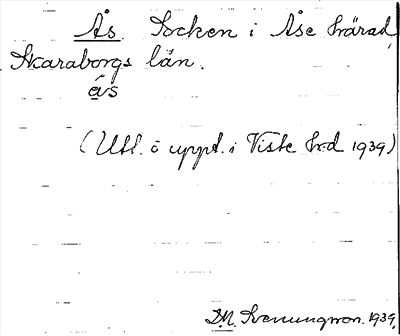 Ås. Socken i Åse härad,
Skaraborgs län.
ås
(Utt. o uppt. i Viste hd 1939)
D.M. Svenungsson. 1939.